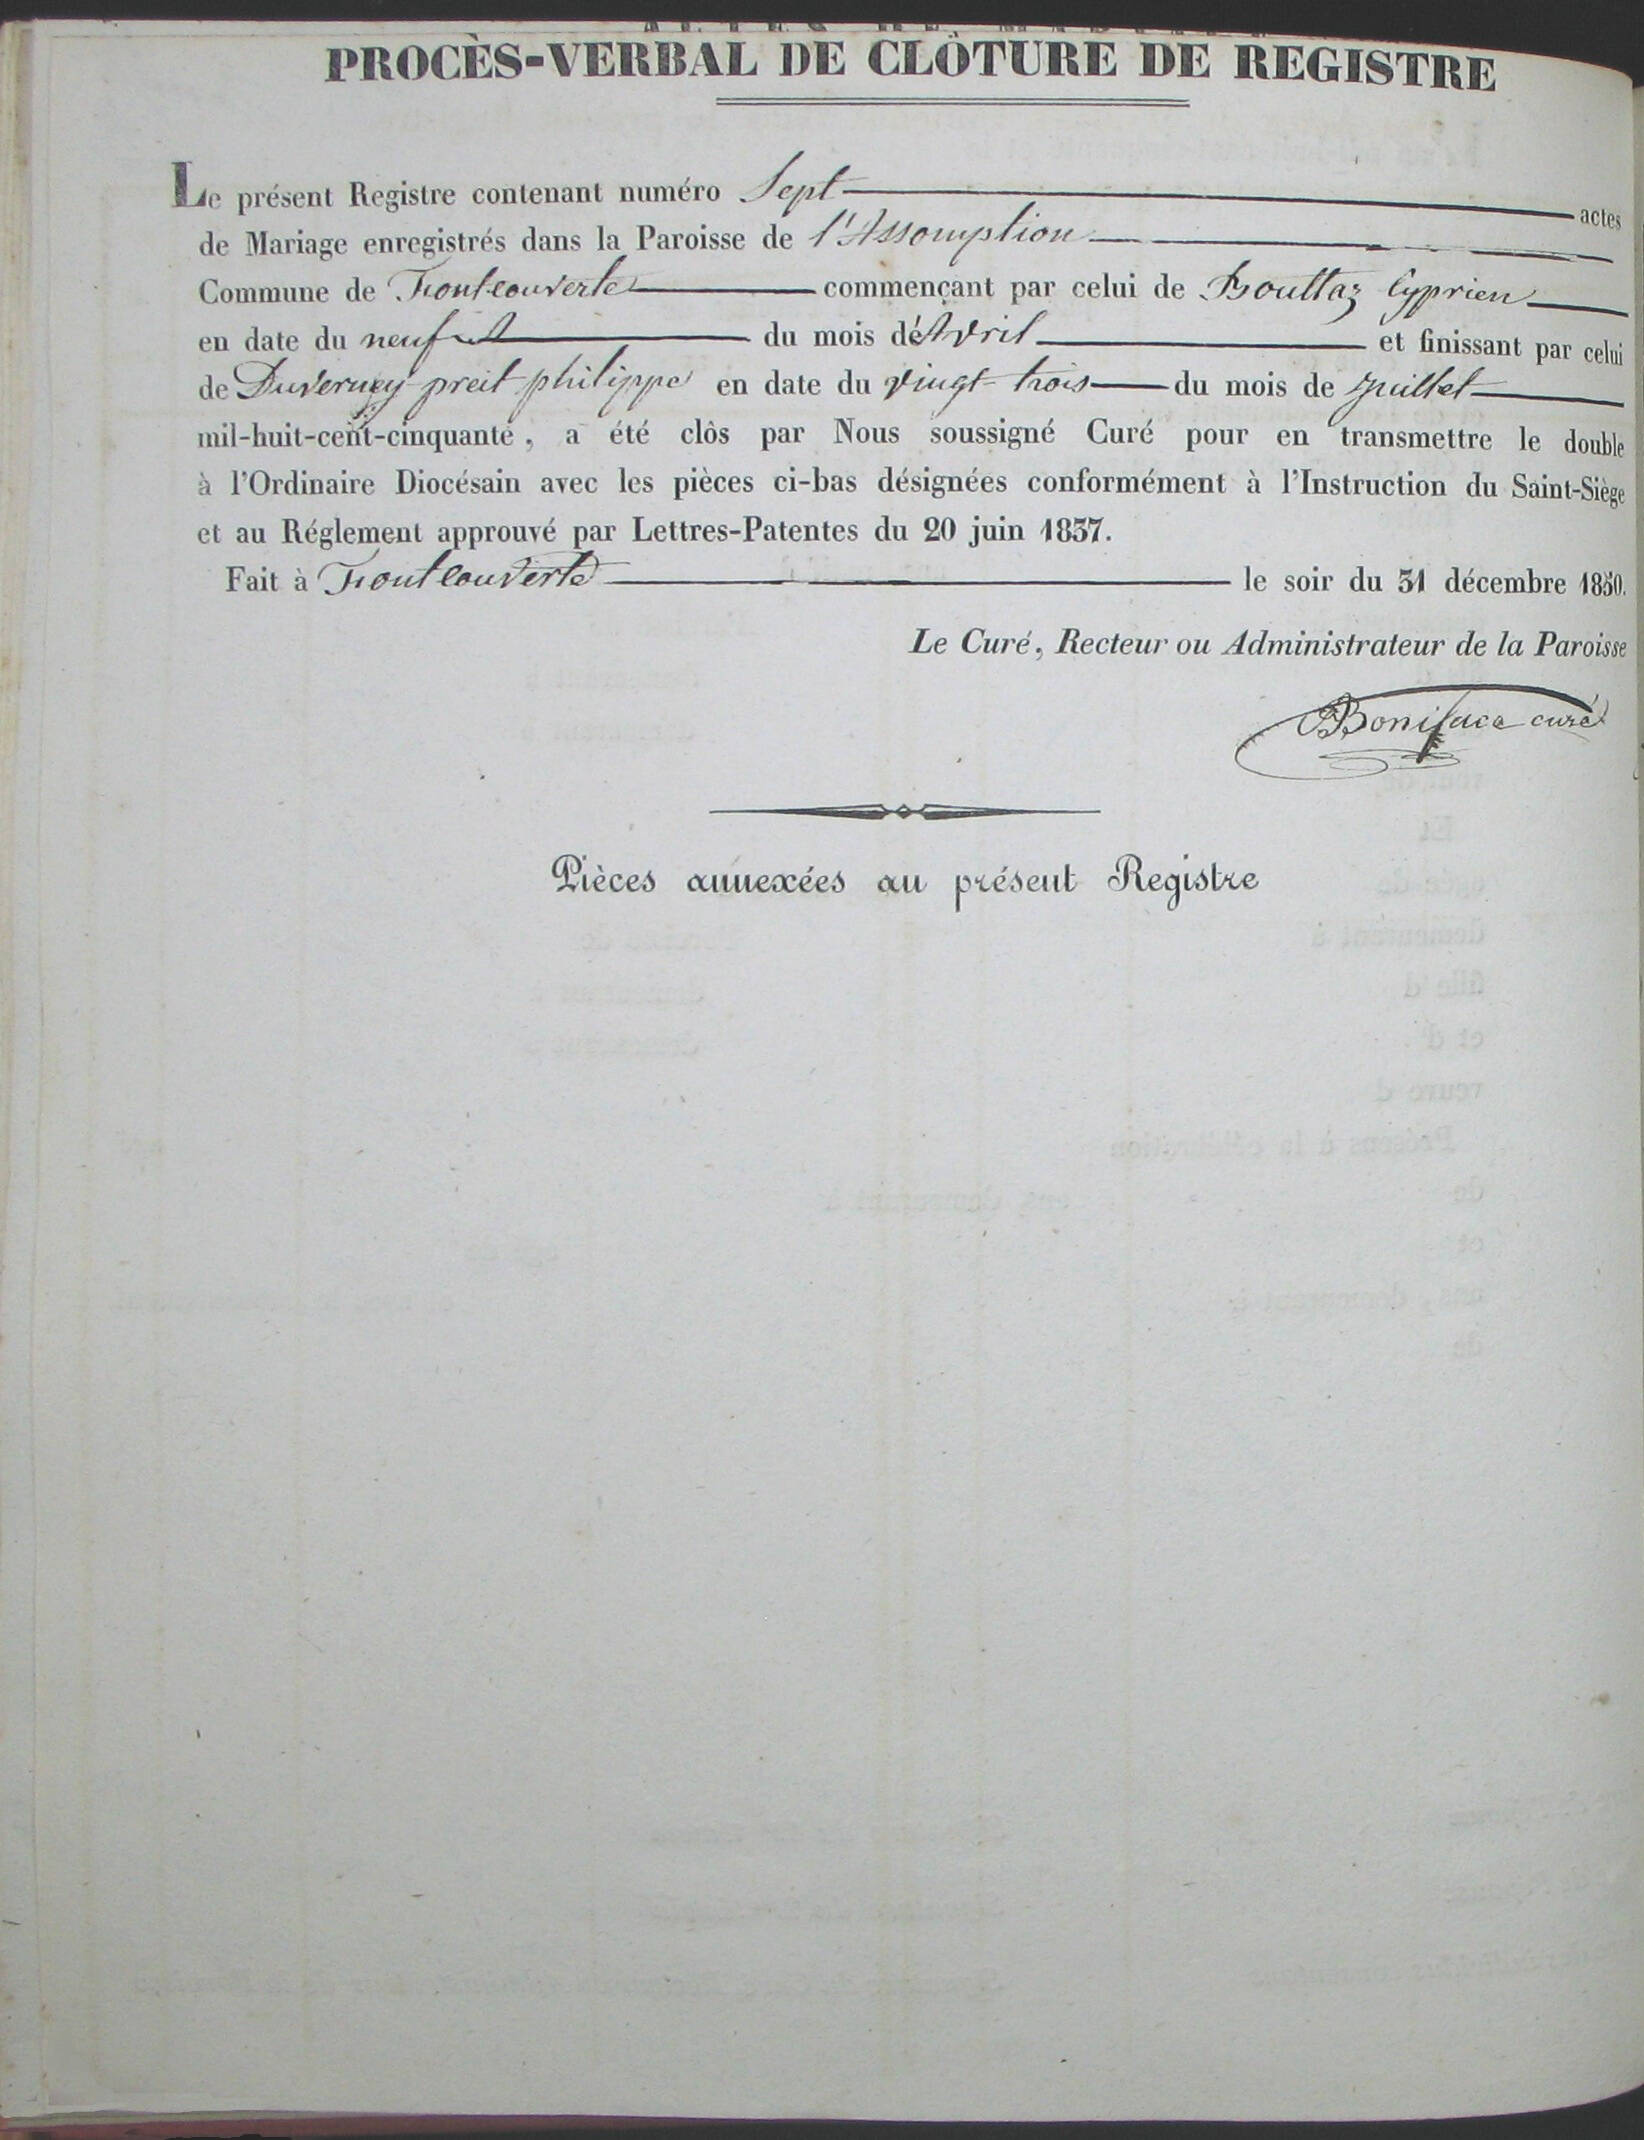 PROCÈS-VERBAL DE CLÔTURE DE REGISTRE
Le présent Registre contenant numéro Sept actes
de Mariage enregistrés dans la Paroisse de l'Assomption
Commune de Fontcouverte commençant par celui de Bouttaz Cyprien
en date du neuf du mois d'Avril et finissant par celui
de Duverney preit philippe en date du vingt-trois du mois de juillet
mil-huit-cent-cinquante, a été clôs par Nous soussigné Curé pour en transmettre le double
à l'Ordinaire Diocésain avec les pièces ci-bas désignées conformément à l'Instruction du Saint-Siège
et au Réglement approuvé par Lettres-Patentes du 20 juin 1837.
Fait à Fontcouverte le soir du 31 décembre 1850.
Le Curé, Recteur ou Administrateur de la Paroisse
Boniface curé
Pièces annexées au présent Registre